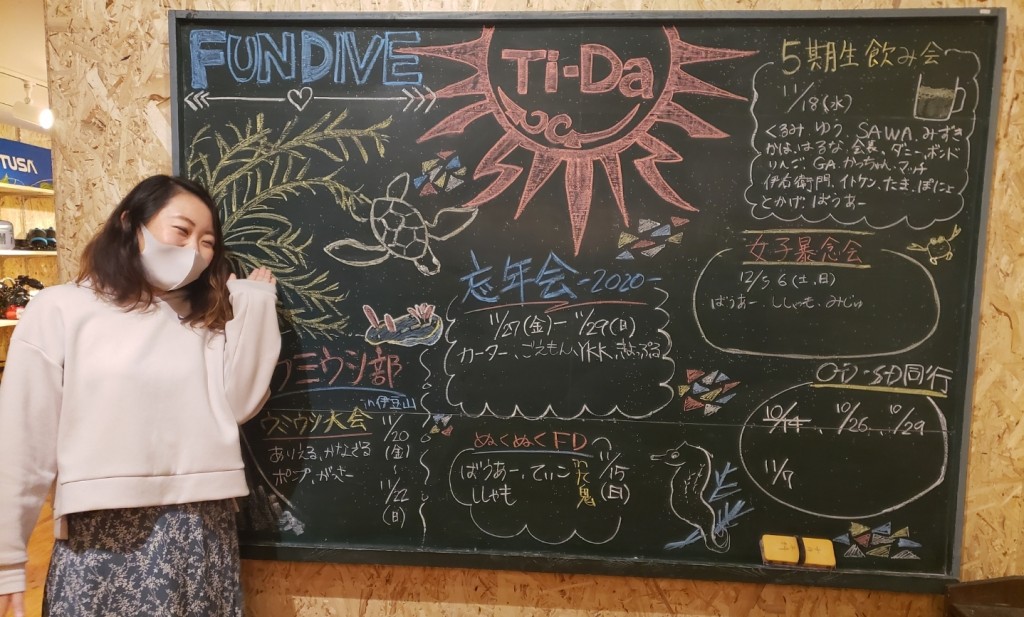 FUNDIVE
Ti-Da
TUSA
5期生飲み会
11/18(水)
くるみ、ゆう、SAWA、みずき
かば、はるな、会長、ダニー、ボンド
りんご、GA、かっちゃん、マッチ
伊右衛門、イトケン、たき、ぽにょ
とかげ、ばうあー
女子暴念会
12/5、6(土、日)
ばうあー、ししゃも、みじゅ
忘年会-2020-
11/27(金)ー11/29(日)
カーター、ごえもん、YKK、きょぷる
ウミウシ部
in伊豆山
ウミウシ大会
11/20(金)
~
11/22(日)
ありえる、かなざる
ポープ、がっさー
ぬくぬくFD
ばうあー、ていこ
ししゃも
11/15(日)
同行
10/14、10/26、10/29
11/7